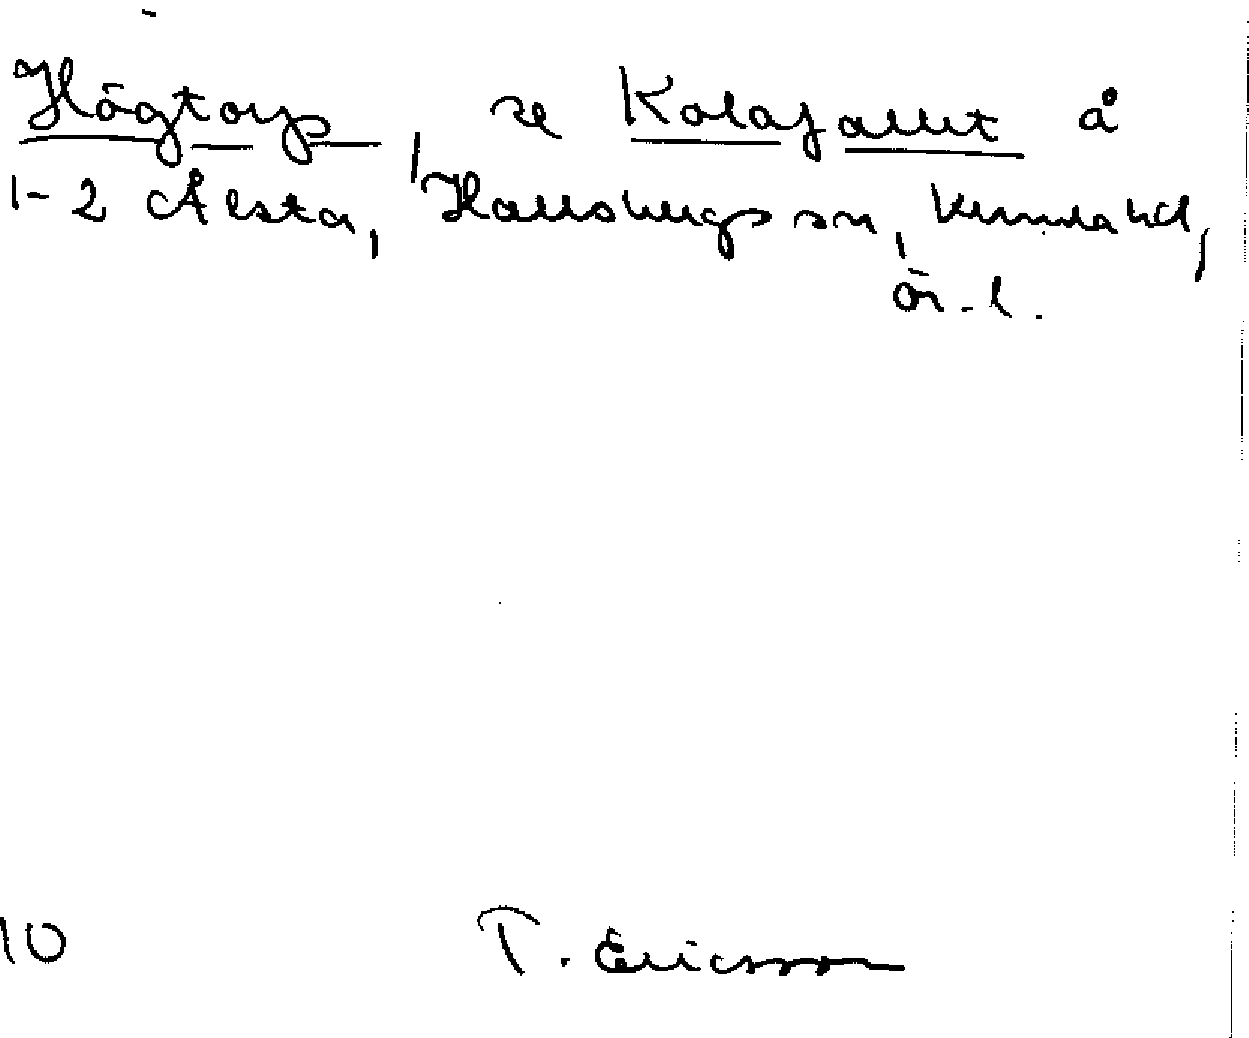 Högtorp, se Kolafallet å
1-2 Ålsta, Hallsbergs sn, Kumla hd,
ör. l.
10
T. Ericsson